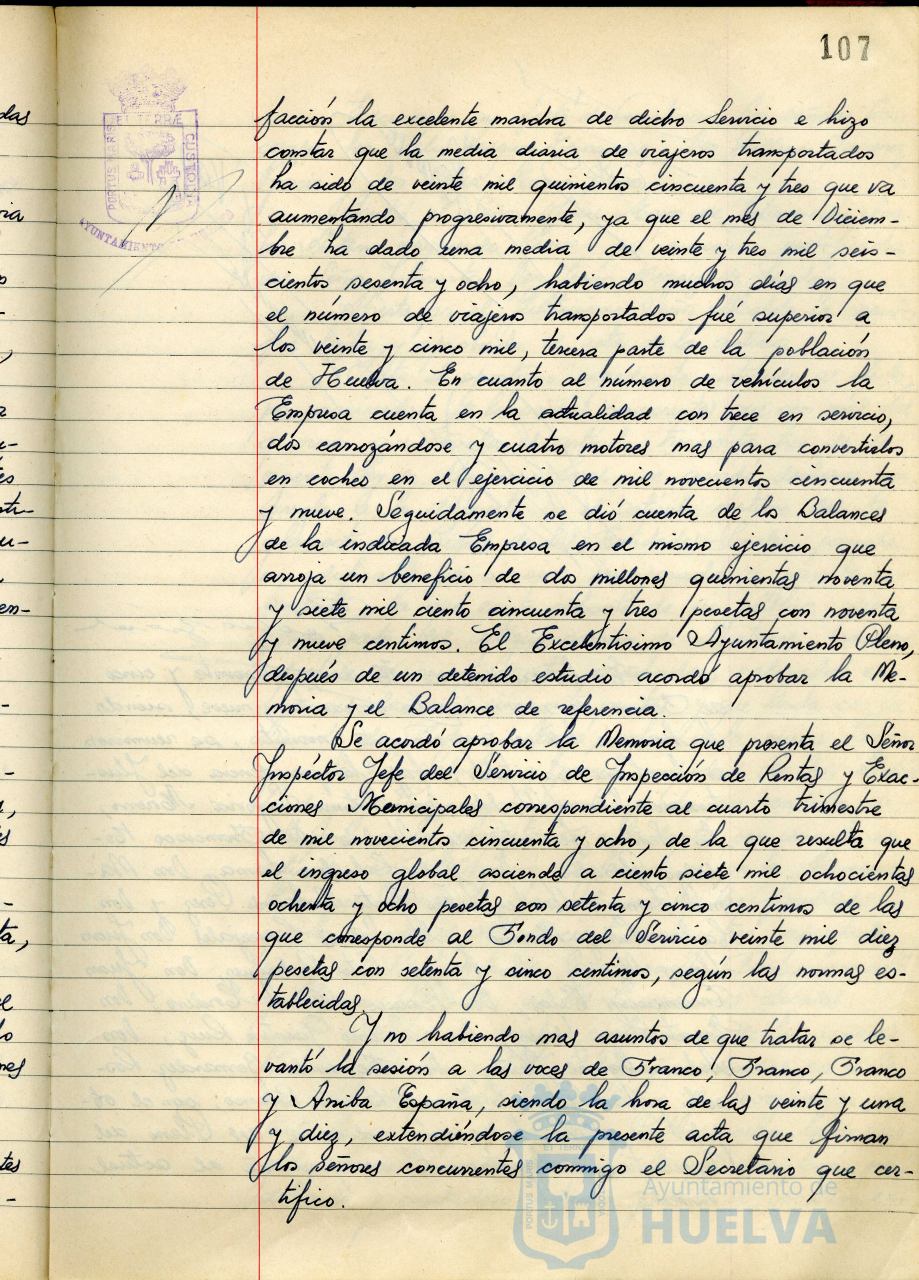 107
PORTUS MARIS ET TERRÆ CUSTODIA
AYUNTAMIENTO
facción la excelente marcha de dicho Servicio e hizo
constar que la media diaria de viajeros transportados
ha sido de veinte mil quinientos cincuenta y tres que va
aumentando progresivamente, ya que el mes de Diciem-
bre ha dado una media de veinte y tres mil seis-
cientos sesenta y ocho, habiendo muchos días en que
el número de viajeros transportados fué superior a
los veinte y cinco mil, tercera parte de la población
de Huelva. En cuanto al número de vehículos la
Empresa cuenta en la actualidad con trece en servicio,
dos carrozándose y cuatro motores mas para convertirlos
en coches en el ejercicio de mil novecientos cincuenta
y nueve. Seguidamente se dió cuenta de los Balances
de la indicada Empresa en el mismo ejercicio que
arroja un beneficio de dos millones quinientas noventa
y siete mil ciento cincuenta y tres pesetas con noventa
y nueve centimos. El Excelentisimo Ayuntamiento Pleno,
después de un detenido estudio acordó aprobar la Me-
moria y el Balance de referencia.
Se acordó aprobar la Memoria que presenta el Señor
Inspéctor Jefe del Servicio de Inspección de Rentas y Exac-
ciones Municipales correspondiente al cuarto trimestre
de mil novecientos cincuenta y ocho, de la que resulta que
el ingreso global asciende a ciento siete mil ochocientas
ochenta y ocho pesetas con setenta y cinco centimos de las
que corresponde al Fondo del Servicio veinte mil diez
pesetas con setenta y cinco centimos, según las normas es-
tablecidas.
Y no habiendo mas asuntos de que tratar se le-
vantó la sesión a las voces de Franco, Franco, Franco
y Arriba España, siendo la hora de las veinte y una
y diez, extendiéndose la presente acta que firman
los señores concurrentes conmigo el Secretario que cer-
tifico.
Ayuntamiento de
HUELVA